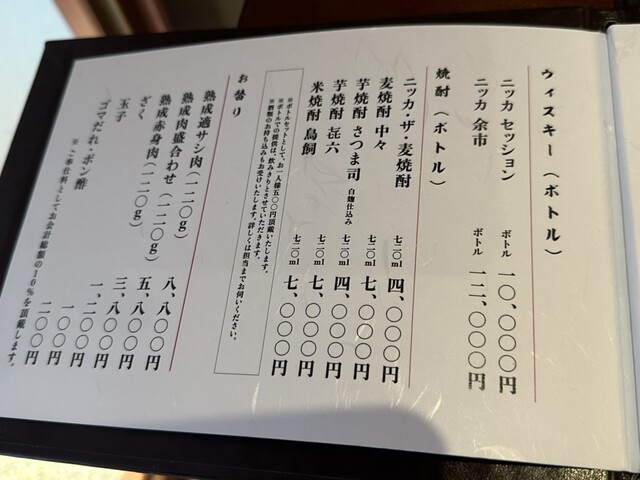 ウィスキー（ボトル）
ニッカ セッション ボトル 一〇、〇〇〇円
ニッカ 余市 ボトル 一二、〇〇〇円
焼酎（ボトル）
ニッカ・ザ・麦焼酎 七二〇ml 四、〇〇〇円
麦焼酎 中々 七二〇ml 七、〇〇〇円
芋焼酎 さつま司 白麹仕込み 七二〇ml 四、〇〇〇円
芋焼酎 㐂六 七二〇ml 七、〇〇〇円
米焼酎 鳥飼 七二〇ml 七、〇〇〇円
※ボトルセットとして、お一人様五〇〇円頂戴いたします。
※ボトルでの提供は、飲みきりとさせていただきます。
※酒類のお持ち込みもお受けいたします。詳しくは担当までお伺いください。
お替り
熟成適サシ肉（一二〇g） 八、八〇〇円
熟成肉盛合わせ（一二〇g） 五、八〇〇円
熟成赤身肉（一二〇g） 三、八〇〇円
ざく 一、二〇〇円
玉子 一〇〇円
ゴマだれ・ポン酢 二〇〇円
※ご奉仕料としてお会計総額の10%を頂戴します。